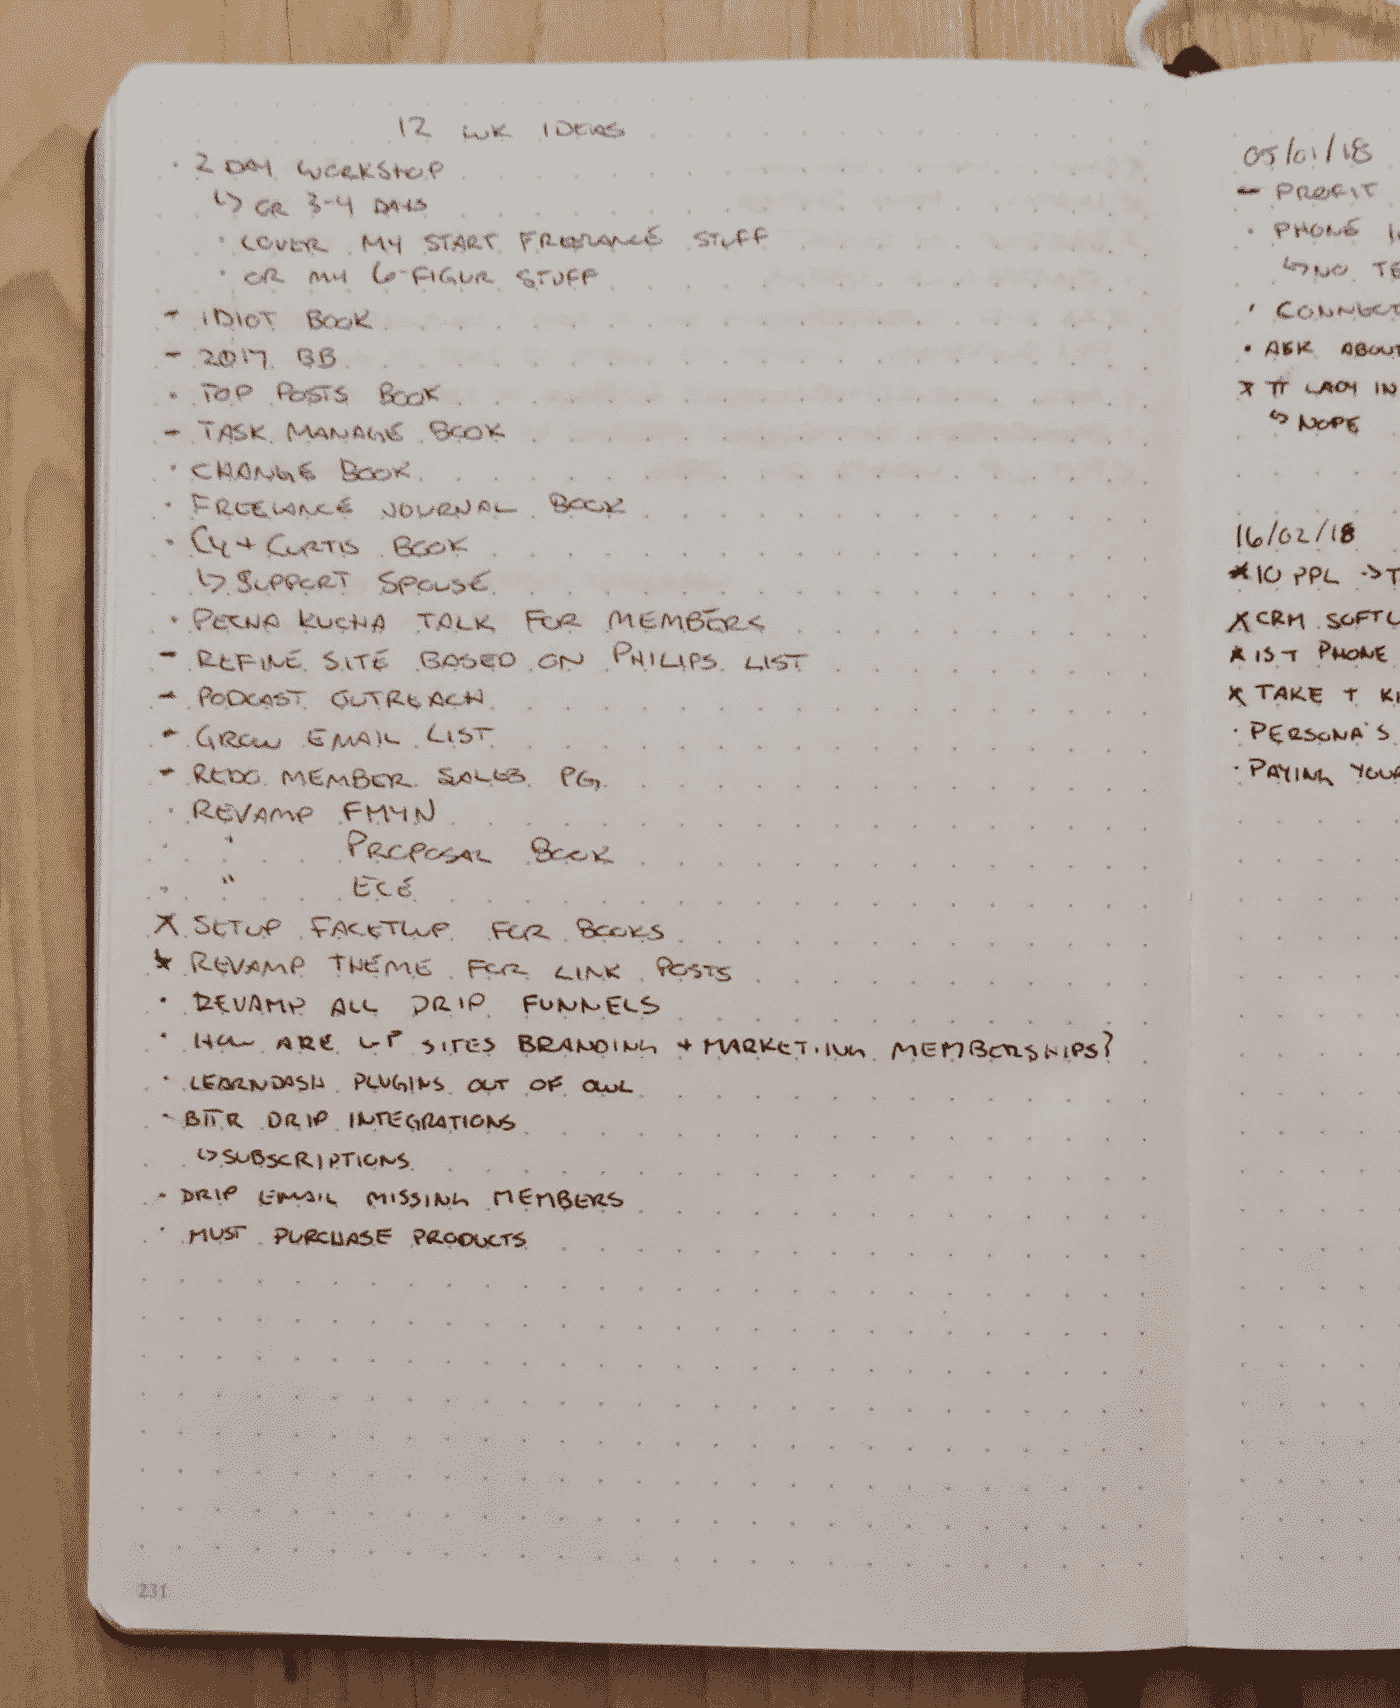 12 WK IDEAS
· 2 DAY WORKSHOP
↳ OR 3-4 DAYS
· COVER MY START FREELANCE STUFF
· OR MY 6-FIGUR STUFF
- IDIOT BOOK
- 2017 BB
· TOP POSTS BOOK
- TASK MANAGE BOOK
· CHANGE BOOK
· FREELANCE JOURNAL BOOK
· CY + CURTIS BOOK
↳ SUPPORT SPOUSE
· PECHA KUCHA TALK FOR MEMBERS
- REFINE SITE BASED ON PHILIPS LIST
- PODCAST OUTREACH
- GROW EMAIL LIST
- REDO MEMBER SALES PG.
· REVAMP FMYN
· " PROPOSAL BOOK
· " ECE
X SETUP FACETWP FOR BOOKS
X REVAMP THEME FOR LINK POSTS
· REVAMP ALL DRIP FUNNELS
· HOW ARE WP SITES BRANDING + MARKETING MEMBERSHIPS?
· LEARNDASH PLUGINS OUT OF OWL
- BTTR DRIP INTEGRATIONS
↳ SUBSCRIPTIONS
· DRIP EMAIL MISSING MEMBERS
· MUST PURCHASE PRODUCTS
231
05/01/18
- PROFIT
· PHONE
↳ NO TE
· CONNECT
· ASK ABOUT
X LADY IN
↳ NOPE
16/02/18
X 10 PPL → T
X CRM
X 1ST PHONE
X TAKE +
· PERSONA'S
· PAYING YOUR